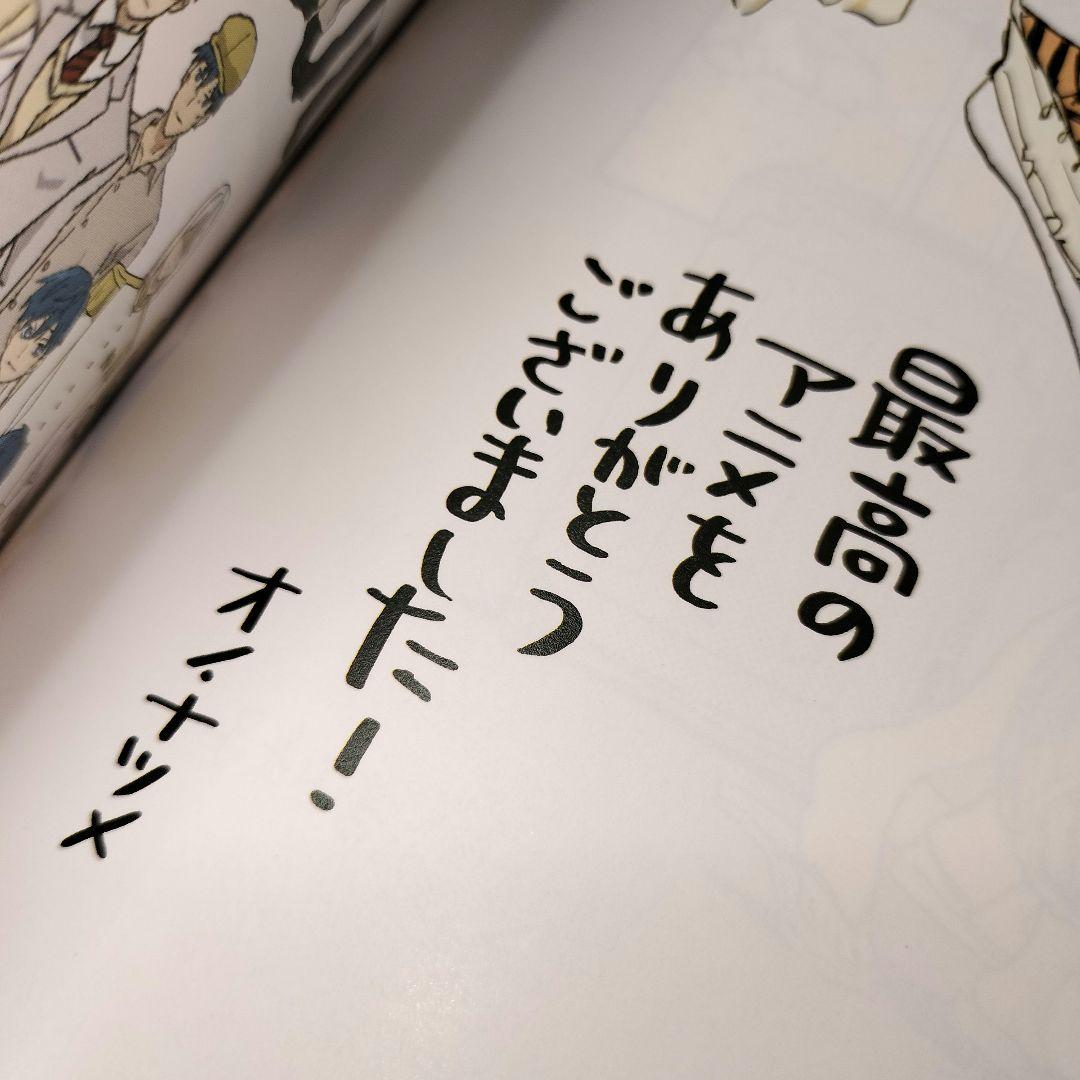 最高の
アニメを
ありがとう
ございました!
オノ・ナツメ